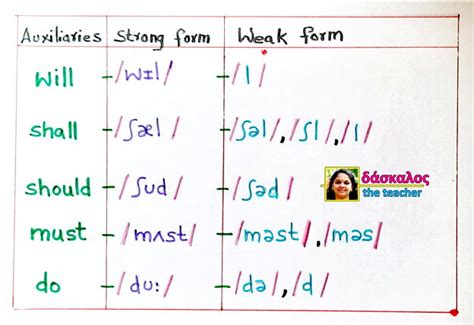 Auxiliaries Strong form Weak form
will -/wɪl/ -/l/
shall -/ʃæl/ -/ʃəl/,/ʃl/,/l/
should -/ʃud/ -/ʃəd/
δάσκαλος
the teacher
must -/mʌst/ -/məst/,/məs/
do -/du:/ -/də/,/d/